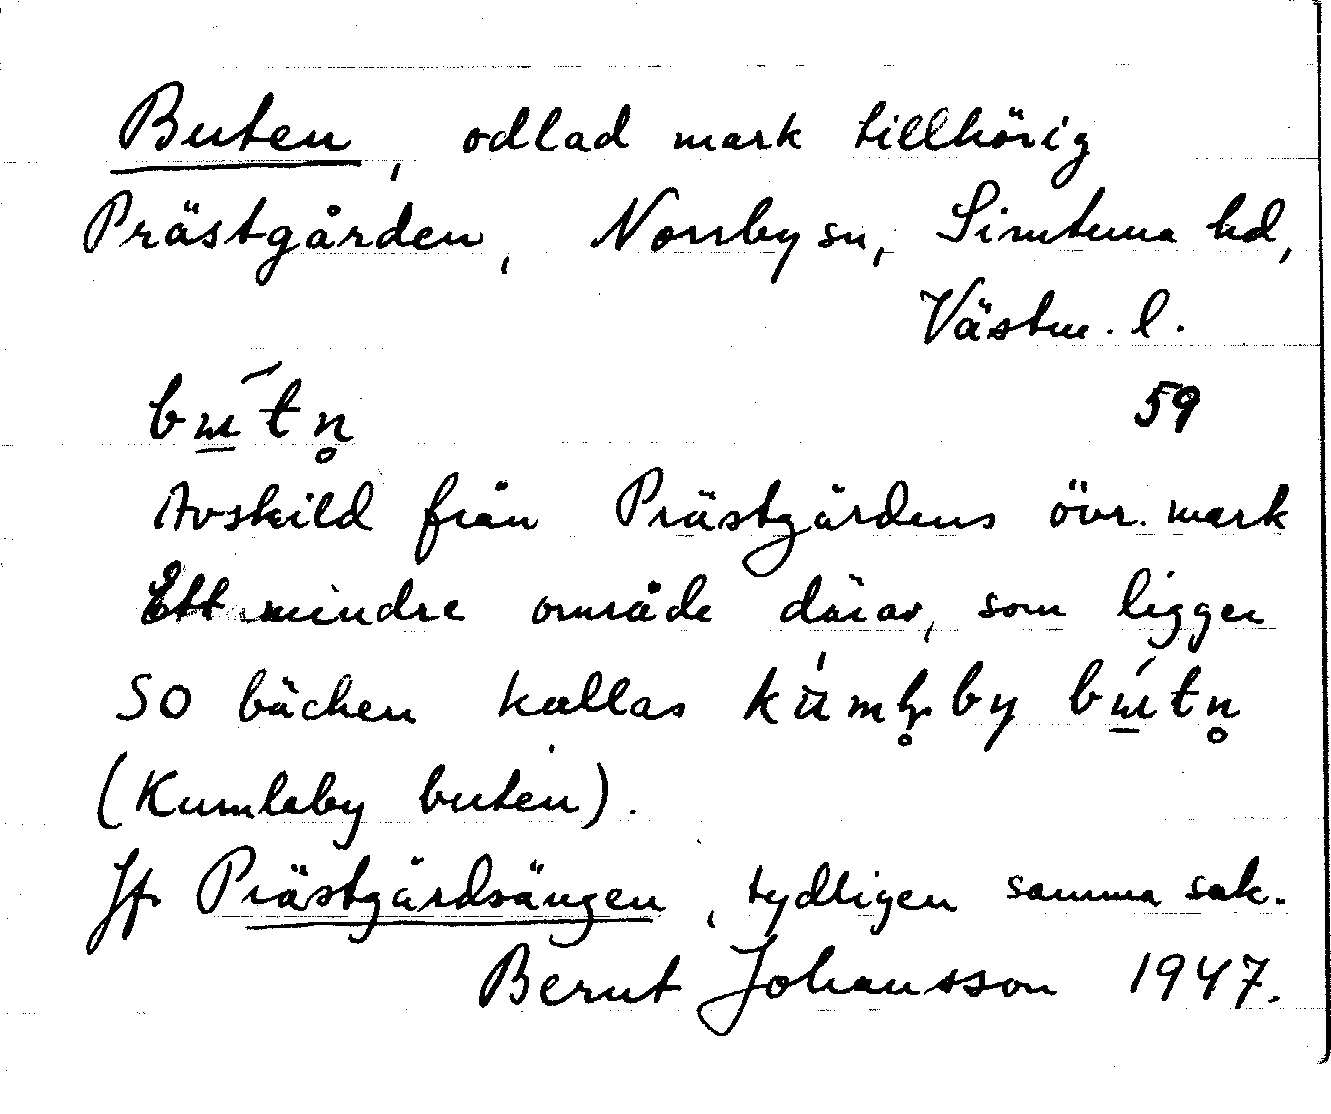 Buten, odlad mark tillhörig
Prästgården, Norrby sn, Simtuna hd,
Västm. l.
bɯ́tn̥ 59
Avskild från Prästgårdens övr. mark
Ett mindre område därav, som ligger
SO bäcken kallas by bɯ́tn̥
(Kumlaby buten).
Jf Prästgårdsängen, tydligen samma sak.
Bernt Johansson 1947.